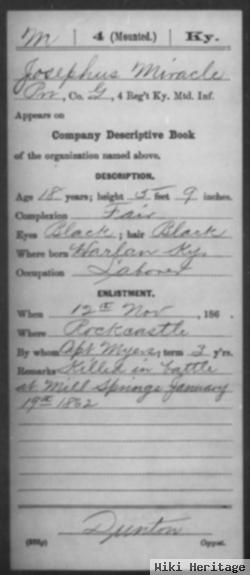 M | 4 (Mounted.) | Ky.
Josephus Miracle
Pvt, Co. G, 4 Reg't Ky. Mtd. Inf.
Appears on
Company Descriptive Book
of the organization named above.
DESCRIPTION.
Age 18 years; height 5 feet 9 inches.
Complexion Fair
Eyes Black; hair Black
Where born Harlan Ky.
Occupation Laborer
ENLISTMENT.
When 12th Nov, 186 .
Where Rockcastle
By whom Cpt Myers; term 3 y'rs.
Remarks Killed in battle
at Mill Springs January
19th 1862
Dunton
Copyist.
Wiki Heritage